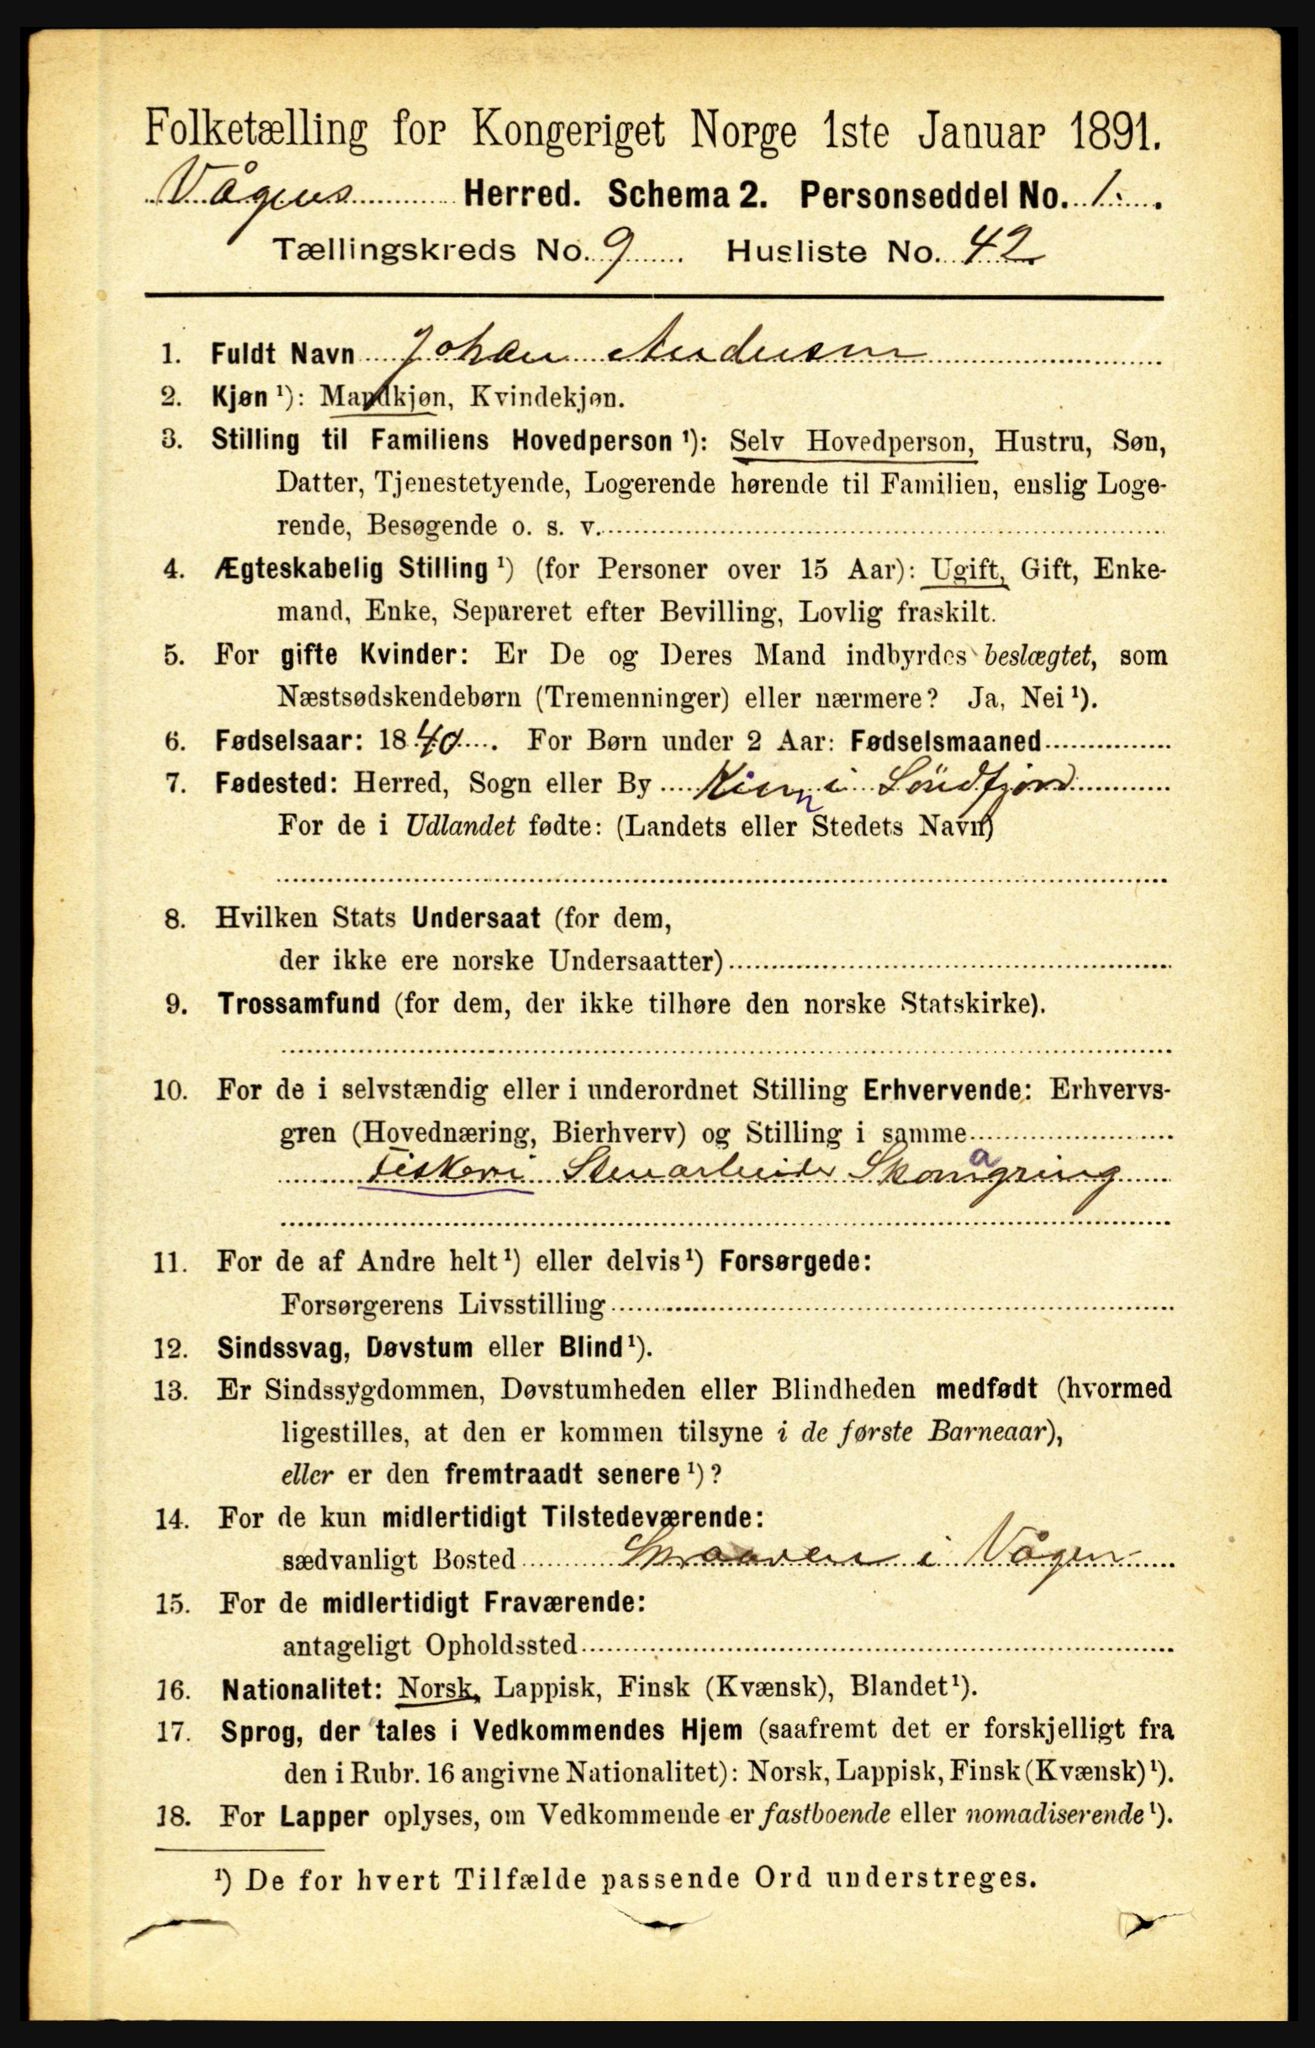 Folketælling for Kongeriget Norge 1ste Januar 1891.
Vågens Herred. Schema 2. Personseddel No. 1.
Tællingskreds No. 9 Husliste No. 42
1. Fuldt Navn Johan Andersen
2. Kjøn ¹): Mandkjøn, Kvindekjøn.
3. Stilling til Familiens Hovedperson ¹): Selv Hovedperson, Hustru, Søn,
Datter, Tjenestetyende, Logerende hørende til Familien, enslig Loge-
rende, Besøgende o. s. v.
4. Ægteskabelig Stilling ¹) (for Personer over 15 Aar): Ugift, Gift, Enke-
mand, Enke, Separeret efter Bevilling, Lovlig fraskilt.
5. For gifte Kvinder: Er De og Deres Mand indbyrdes beslægtet, som
Næstsødskendebørn (Tremenninger) eller nærmere? Ja, Nei ¹).
6. Fødselsaar: 1840. For Børn under 2 Aar: Fødselsmaaned
7. Fødested: Herred, Sogn eller By Kinn i Söndfjord
For de i Udlandet fødte: (Landets eller Stedets Navn)
8. Hvilken Stats Undersaat (for dem,
der ikke ere norske Undersaatter)
9. Trossamfund (for dem, der ikke tilhøre den norske Statskirke).
10. For de i selvstændig eller i underordnet Stilling Erhvervende: Erhvervs-
gren (Hovednæring, Bierhverv) og Stilling i samme
Fiskeri Stenarbeider
11. For de af Andre helt ¹) eller delvis ¹) Forsørgede:
Forsørgerens Livsstilling
12. Sindssvag, Døvstum eller Blind ¹).
13. Er Sindssygdommen, Døvstumheden eller Blindheden medfødt (hvormed
ligestilles, at den er kommen tilsyne i de første Barneaar),
eller er den fremtraadt senere ¹)?
14. For de kun midlertidigt Tilstedeværende:
sædvanligt Bosted i Vågen
15. For de midlertidigt Fraværende:
antageligt Opholdssted
16. Nationalitet: Norsk, Lappisk, Finsk (Kvænsk), Blandet ¹).
17. Sprog, der tales i Vedkommendes Hjem (saafremt det er forskjelligt fra
den i Rubr. 16 angivne Nationalitet): Norsk, Lappisk, Finsk (Kvænsk) ¹).
18. For Lapper oplyses, om Vedkommende er fastboende eller nomadiserende ¹).
¹) De for hvert Tilfælde passende Ord understreges.